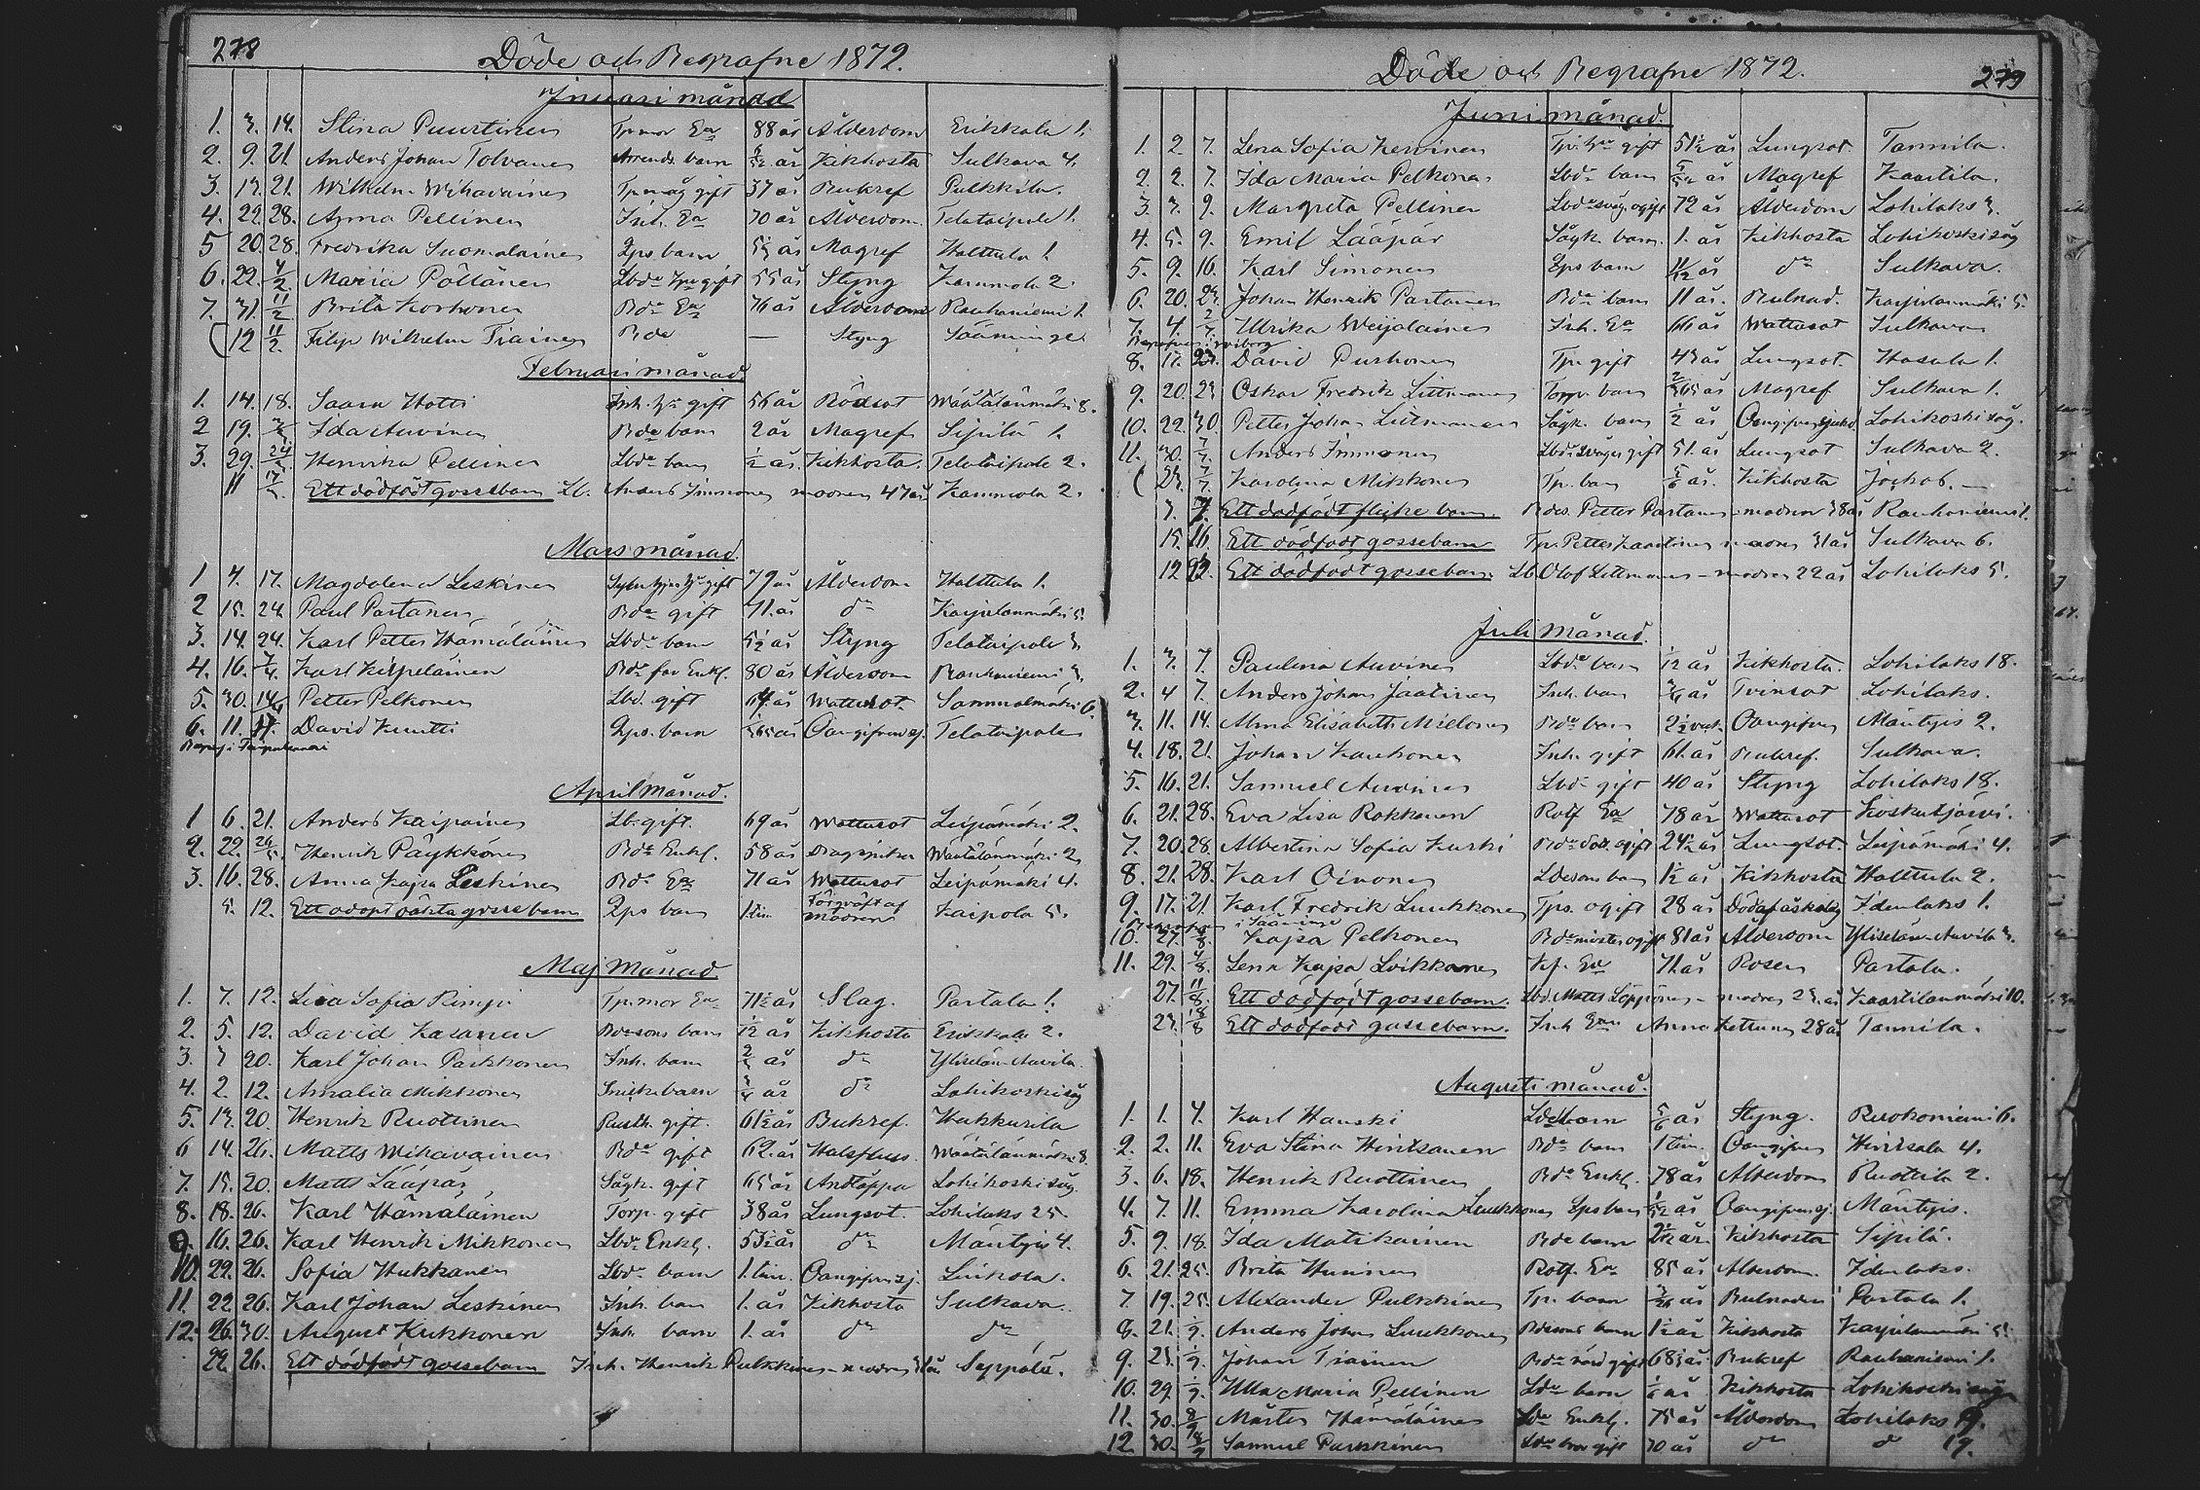 278
Döde och Begrafne 1872.
Januari månad
1. 3. 14. Stina Puurtinen Tp mor Ea 88 år Ålderdom Erikkala 1.
2. 9. 21. Anders Johan Tolvanen Arrend. barn år Kikhosta Sulkava 4.
3. 13. 21. Wilhelm Wihavainen Tp måg gift 37 år Bukref Pulkkila.
4. 22. 28. Anna Pellinen Inh. Ea 70 år Ålderdom Telataipale 1.
5 20. 28. Fredrika Suomalainen Lps barn år Magref Halttula 1.
6. 22. 4/2 Maria Pöllänen gift 55 år Styng Kammola 2.
7. 31. 11/2 Brita Korhonen Bde Ea 76 år Ålderdom Rauhaniemi 1.
12 11/2. Filip Wilhelm Tiainen Bde — Styng Sääminge
Februari månad.
1. 14. 18. Saara Hotti Inh. gift 56 år Rödsot Väätälänmäki 8.
2 19. Ida Auvinen Bde barn 2 år Magref Sipilä 1.
3. 29. Henrika Pellinen Lbde barn 1/2 år. Kikhosta. Telataipale 2.
11 Ett dödfödt gossebarn Lb. Anders Immonen modren 47 år Kammola 2.
Mars månad.
1 4. 17. Magdalena Leskinen gift 79 år Ålderdom Halttula 1.
2 15. 24. Paul Partanen Bde gift 71 år do Karjulanmäki 5.
3. 14. 24. Karl Petter Hämäläinen Lbde barn 5 1/2 år Styng Telataipale 3
4. 16. 7/4 Karl Kirpeläinen Bde far Enkl. 80 år Ålderdom Rauhaniemi 3.
5. 30. 14/4 Petter Pelkonen Lbd. gift år Wattusot Sammalmäki 6.
6. 11. 17. David Kuutti Lps. barn år Oangifven sj. Telataipale
April månad.
1 6. 21. Anders Kaipainen Lb. gift. 69 år Wattusot Leipämäki 2.
2. 22. Henrik Päykkönen Bde Enkl. 58 år Dragsjuka Väätälänmäki 2
3. 16. 28. Anna Kajsa Leskinen Bde Ea 71 år Wattusot Leipämäki 4.
5. 12. Ett odöpt gossebarn Lps barn 1 tim. Förqväft af modren Kaipola 5.
Maj Månad
1. 7. 12. Lisa Sofia Rimpi Tp. mor Ea 71 1/2 år Slag. Partala 1.
2. 5. 12. David Kasanen Bdesons barn år Kikhosta Erikkala 2.
3. 7 20. Karl Johan Parkkonen Inh. barn år do Yliselän Auvila.
4. 2. 12. Amalia Mikkonen barn 3/4 år do Lohikoski såg
5. 13. 20. Henrik Ruottinen Rusth. gift. 61 1/2 år Bukref. Hakkurila
6 14. 26. Matts Wihavainen Bde gift 62. år Halsfluss. Väätälänmäki 8.
7. 15. 20. Matts Lääpär Sågk. gift 65 år Andtäppa Lohikoski såg.
8. 18. 26. Karl Hämäläinen Torp. gift 38 år Lungsot. Lohilaks 25
9. 16. 26. Karl Henrik Mikkonen Lbde Enkl. 53 1/2 år do Mäntyis 4.
10. 22. 26. Sofia Hukkanen Lbde barn 1. tim. Oangifven sj. Linkola.
11. 22. 26. Karl Johan Leskinen Inh. barn 1. år Kikhosta Sulkava.
12. 26. 30. August Kukkonen Inh. barn 1. år do do
22. 26. Ett dödfödt gossebarn Inh. Henrik Pulkkinen - modren år Seppälä.
279
Döde och Begrafne 1872.
Juni månad.
1. 2. 7. Lena Sofia Kervinen gift 51 1/2 år Lungsot. Tannila.
2. 2. 7. Ida Maria Pelkonen Lbde barn år Magref Kaartila.
3. 3. 9. Margreta Pellinen ogift 72 år Ålderdom Lohilaks 3.
4. 5. 9. Emil Lääpär Sågk. barn. 1. år Kikhosta Lohikoski såg
5. 9. 16. Karl Simonen Lps barn 11/12 år do Sulkava.
6. 20. 23. Johan Henrik Partanen Bde barn 11 år. Bulnad. Karjulanmäki 5.
7. 4. 2/7. Ulrika Weijalainen Inh. Ea 66 år Wattusot Sulkava
Begrafven i Wiborg
8. 17. 23. David Purhonen Tp. gift 43 år Lungsot. Hasula 1.
9. 20. 23 Oskar Fredrik Littmanen Torp. barn år Magref Sulkava 1.
10. 22. 30. Petter Johan Littmanen Sågk. barn 1/2 år Oangifven sjukd Lohikoski såg.
11. 30. 7/7. Anders Immonen Lbde svåger gift 51. år Lungsot Sulkava 2.
23. 7/7. Karolina Mikkonen Tp. barn 5/6 år. Kikhosta Jockas. —
3. Ett dödfödt flicke barn. Bdes. Petter Partanen - modren 38 år Rauhaniemi 1.
15. 16. Ett dödfödt gossebarn Tp. Petter Kaartinen modren 31 år Sulkava 6.
12 23. Ett dödfödt gossebarn. Lb Olof Littmanen - modren 22 år Lohilaks 5.
Juli Månad.
1. 3. 7. Paulina Auvinen Lbde barn år Kikhosta. Lohilaks 18.
2. 4 7. Anders Johan Jaatinen Inh. barn år Tvinsot Lohilaks.
3. 11. 14. Alma Elisabeth Miettinen Bde barn Oangifven Mäntyis 2.
4. 18. 21. Johan Kaukonen Inh. gift 61. år Bukref. Sulkava.
5. 16. 21. Samuel Auvinen Lbde gift 40 år Styng Lohilaks 18.
6. 21. 28. Eva Lisa Rokkanen Rotf Ea 78 år Wattusot Koskutjärvi.
7. 20. 28. Albertina Sofia Kurki Bde dotr ogift 24 1/2 år Lungsot. Leipämäki 4.
8. 21. 28. Karl Oinonen Ldesons barn 1 1/2 år Kikhosta Halttula 2.
9. 17. 21. Karl Fredrik Luukkonen Tps. ogift 28 år Död af åskslag Idenlaks 1.
Begrafven i Sääminge
10. 27. 4/8. Kajsa Pelkonen Bde moster ogift 81 år Ålderdom Yliselän Auvila 3.
11. 29. 4/8. Lena Kajsa Loikkanen Kf. Ea 71. år Rosen Partala.
27. 11/8. Ett dödfödt gossebarn. Lbd. Matts Löppönen - modren 23. år Kaartilanmäki 10.
23. 18/8 Ett dödfödt gossebarn. Inh Ean Anna Kettunen 28 år Tannila.
Augusti månad.
1. 1. 4. Karl Hanski Lde barn 5/6 år Styng. Ruokoniemi 6.
2. 2. 11. Eva Stina Hintsanen Bde barn 1 tim. Oangifven Hintsala 4.
3. 6. 18. Henrik Ruottinen Bde Enkl. 78 år Ålderdom Ruottila 2.
4. 7. 11. Emma Karolina Luukkonen Lps barn år Oangifven sj. Mäntyis.
5. 9. 18. Ida Matikainen Bde barn år. Kikhosta Sipilä.
6. 21. 25. Brita Huuinen Rotf. Ea 85 år Ålderdom. Idenlaks.
7. 19. 25. Alexander Pulkkinen Tp. barn år Bulnaden Partala 1.
8. 21. 1/9. Anders Johan Luukkonen Bdesons barn 1 1/2 år Kikhosta Karjulanmäki 5.
9. 25. 1/9. Johan Tiainen Bde värd gift 68 1/2 år Bukref Rauhaniemi 1.
10. 29. 1/9. Ulla Maria Pellinen Lde barn år Kikhosta Lohikoski såg
11. 30. 8/9 Mårten Hämäläinen Lde Enkl. 75 år Ålderdom Lohilaks 19.
12. 30. 8/9 Samuel Parkkinen Lde bror gift 70 år do do 19.